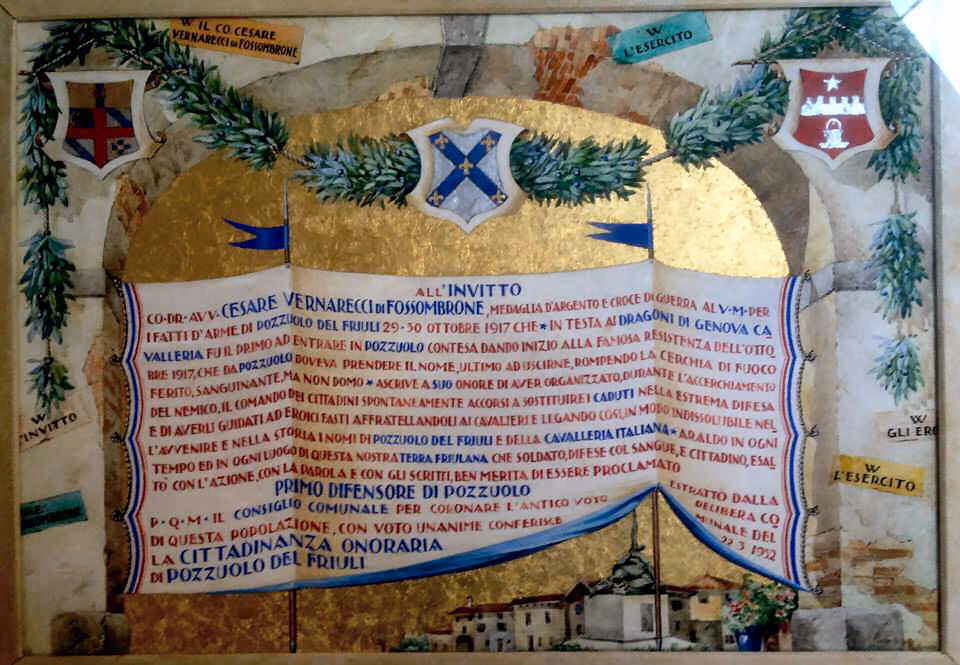 W IL CO CESARE
VERNARECCI DI FOSSOMBRONE
W
L'ESERCITO
ALL'INVITTO
CO·DR·AVV·CESARE VERNARECCI DI FOSSOMBRONE, MEDAGLIA D'ARGENTO E CROCE DI GUERRA AL V·M·PER
I FATTI D'ARME DI POZZUOLO DEL FRIULI 29·30 OTTOBRE 1917 CHE★IN TESTA AI DRAGONI DI GENOVA CA
VALLERIA FU IL PRIMO AD ENTRARE IN POZZUOLO CONTESA DANDO INIZIO ALLA FAMOSA RESISTENZA DELL'OTTO
BRE 1917, CHE DA POZZUOLO DOVEVA PRENDERE IL NOME, ULTIMO AD USCIRNE, ROMPENDO LA CERCHIA DI FUOCO
FERITO, SANGUINANTE, MA NON DOMO★ASCRIVE A SUO ONORE DI AVER ORGANIZZATO, DURANTE L'ACCERCHIAMENTO
DEL NEMICO, IL COMANDO DEI CITTADINI SPONTANEAMENTE ACCORSI A SOSTITUIRE I CADUTI NELLA ESTREMA DIFESA
E DI AVERLI GUIDATI AD EROICI FASTI AFFRATELLANDOLI AI CAVALIERI E LEGANDO COSI, IN MODO INDISSOLUBILE NEL
L'AVVENIRE E NELLA STORIA I NOMI DI POZZUOLO DEL FRIULI E DELLA CAVALLERIA ITALIANA★ARALDO IN OGNI
TEMPO ED IN OGNI LUOGO DI QUESTA NOSTRA TERRA FRIULANA CHE SOLDATO, DIFESE COL SANGUE, E CITTADINO, ESAL
TO' CON L'AZIONE, CON LA PAROLA E CON GLI SCRITTI, BEN MERITA DI ESSERE PROCLAMATO
PRIMO DIFENSORE DI POZZUOLO
P·Q·M·IL CONSIGLIO COMUNALE PER CORONARE L'ANTICO VOTO
DI QUESTA POPOLAZIONE, CON VOTO UNANIME CONFERISCE
LA CITTADINANZA ONORARIA
DI POZZUOLO DEL FRIULI
ESTRATTO DALLA
DELIBERA CO
MUNALE DEL
22 3 1952
W
L'INVITTO
W
GLI ERO
W
L'ESERCITO